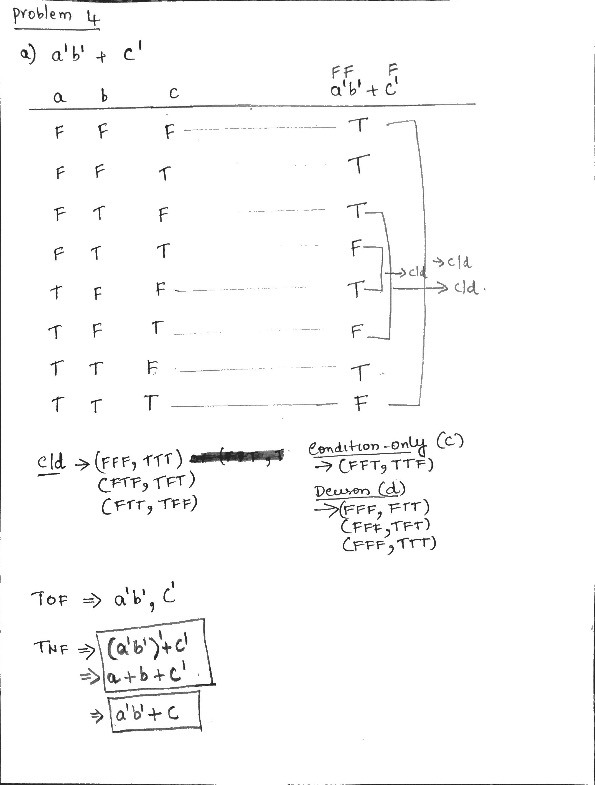 Problem 4
a) a'b' + c'
FF F
a b c a'b' + c'
F F F T
F F T T
F T F T
F T T F
→ c/d → c/d
T F F T → c/d.
T F T F
T T F T
T T T F
c/d → (FFF, TTT)
(FTF, TFT)
(FTT, TFF)
Condition-only (C)
→ (FFT, TTF)
Decison (d)
→ (FFF, FTT)
(FFF, TFT)
(FFF, TTT)
TOF ⇒ a'b', C'
TNF ⇒ (a'b')'+c'
⇒ a+b+c'
⇒ a'b'+c